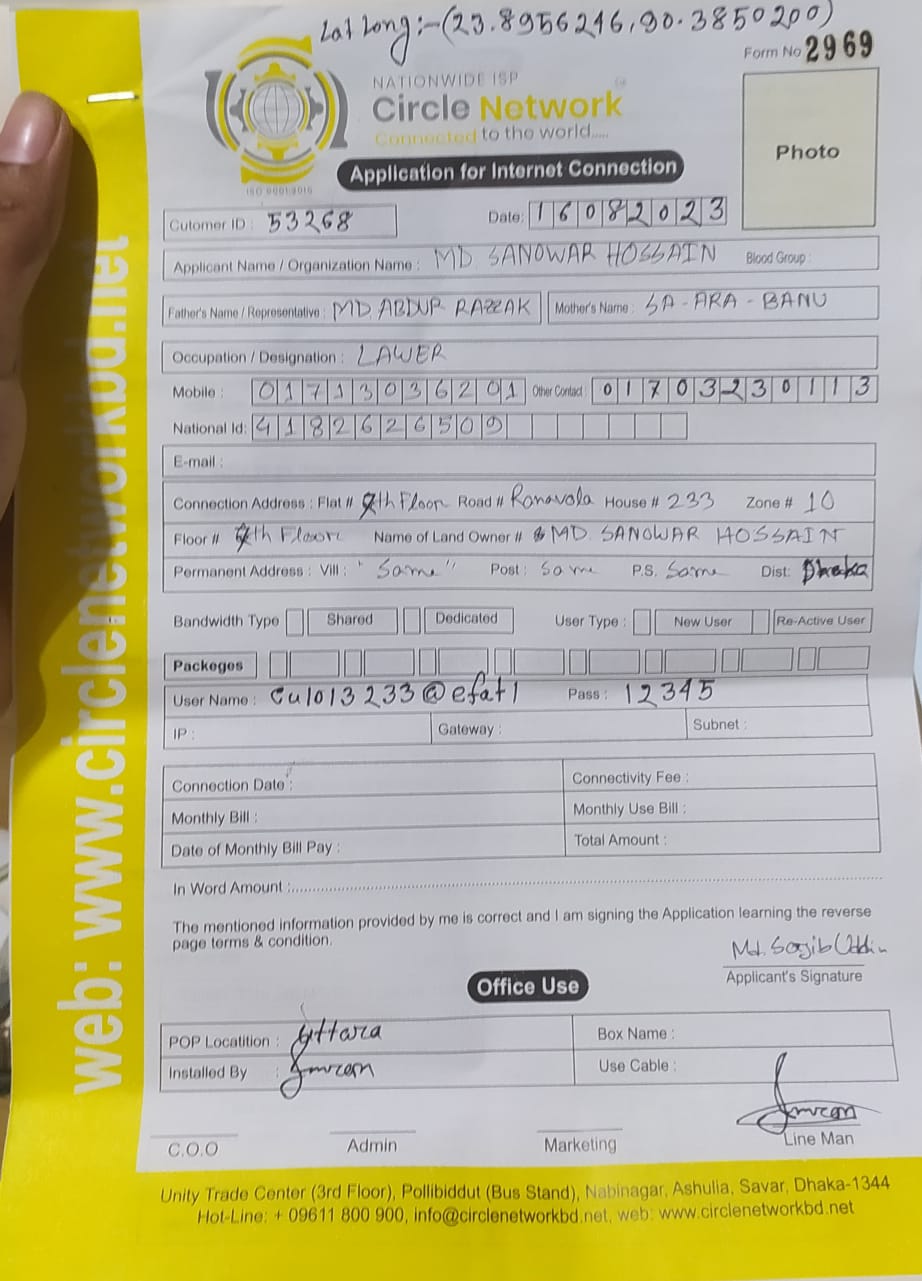 Lat Long:-(23.8956246,90.3850200)
Form No 2969
NATIONWIDE ISP
Circle Network
Connected to the world.....
ISO 9001:2015
Application for Internet Connection
Photo
Cutomer ID : 53268
Date: 16082023
Applicant Name / Organization Name : MD. SANOWAR HOSSAIN Blood Group :
Father's Name / Representative : MD. ABDUR RAZZAK Mother's Name : SA-ARA-BANU
Occupation / Designation : LAWER
Mobile : 01713036201 Other Contact 01703230113
National Id: 4182626509
E-mail :
Connection Address : Flat # 7th Floor Road # Ranavola House # 233 Zone # 10
Floor # 7th Floor Name of Land Owner # MD. SANOWAR HOSSAIN
Permanent Address : Vill : "Same" Post : Same P.S. Same Dist: Dhaka
Bandwidth Type Shared Dedicated User Type : New User Re-Active User
Packeges
User Name : Cul013233@efat1 Pass : 12345
IP : Gateway : Subnet :
Connection Date : Connectivity Fee :
Monthly Bill : Monthly Use Bill :
Date of Monthly Bill Pay : Total Amount :
In Word Amount :
The mentioned information provided by me is correct and I am signing the Application learning the reverse
page terms & condition.
Md. Sojib Uddin
Applicant's Signature
Office Use
POP Locatition : Uttara Box Name :
Installed By : Imran Use Cable :
Imran
C.O.O Admin Marketing Line Man
Unity Trade Center (3rd Floor), Pollibiddut (Bus Stand), Nabinagar, Ashulia, Savar, Dhaka-1344
Hot-Line: + 09611 800 900, info@circlenetworkbd.net, web: www.circlenetworkbd.net
web: www.circlenetworkbd.net